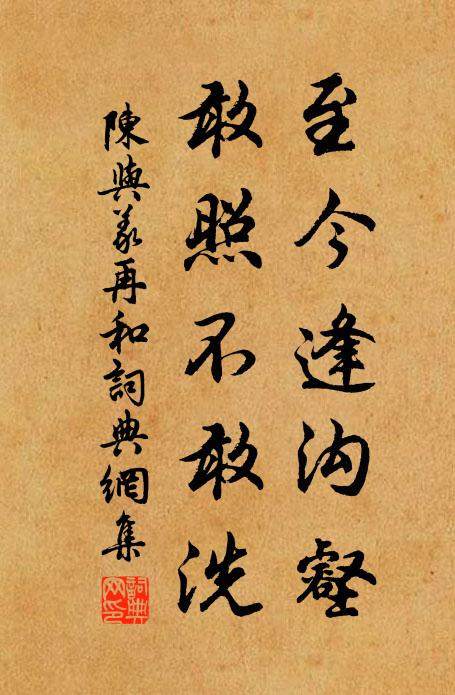 至今逢沟壑
敢照不敢洗
陳與義再和詞典網集
詞典网印